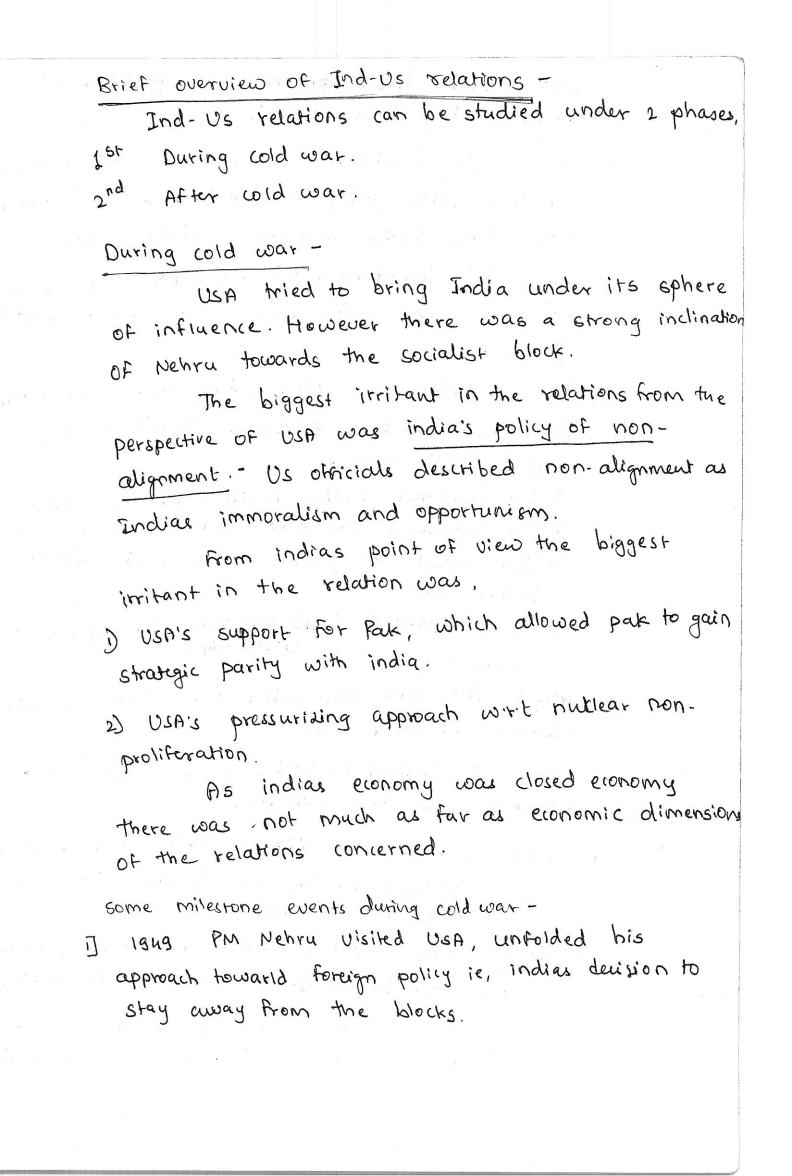 Brief overview of Ind-Us relations -
Ind-Us relations can be studied under 2 phases,
1st During cold war.
2nd After cold war.
During cold war -
USA tried to bring India under its sphere
of influence. However there was a strong inclination
of Nehru towards the socialist block.
The biggest irritant in the relations from the
perspective of USA was india's policy of non-
alignment. - Us officials described non-alignment as
Indias immoralism and opportunism.
From indias point of view the biggest
irritant in the relation was,
1) USA's support for Pak, which allowed pak to gain
strategic parity with india.
2) USA's pressurizing approach w.r.t nuclear non-
proliferation.
As indias economy was closed economy
there was not much as far as economic dimension
of the relations concerned.
Some milestone events during cold war -
i] 1949 PM Nehru visited USA, unfolded his
approach toward foreign policy ie, indias decision to
stay away from the blocks.